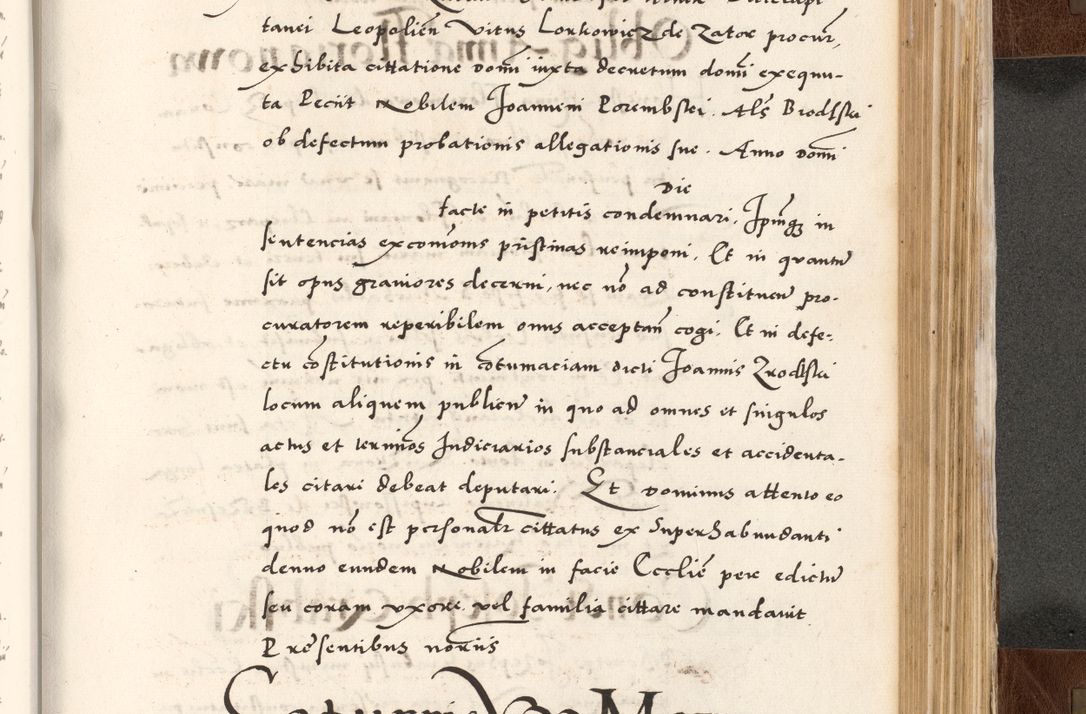 tanei Leopolień Vitus Lonkowicz de Zator procur̃,
exhibita cittatione Domi͂ iuxta decretum domi͂ exequu-
ta Peciit Nobilem Joannem Porembski. Als̃ Brodlski
ob defectum probationis allegationis sue. Anno Domi͂
Die
facte in petitis condemnari. Ipm̃qꝫ in
sentencias excom̃onis pr̃istinas reimponi. Et in quantũ
sit opus graviores decerni, nec nõ ad constituend̃ pro-
curatorem reperibilem onus acceptañ cogi. Et in defe-
ctu cõstitutionis in cõtumaciam dicti Joannis Zrodlski
locum aliquem publicũ in quo ad omnes et singulos
actus et terminos Judiciarios substanciales et accidenta-
les citari debeat deputari. Et Dominus attento eo
quod nõ est personalr̃ cittatus ex Superhabundanti
denuo eundem Nobilem in facie Eccliẽ per edictũ
seu coram uxore vel familia cittare mandavit
Presentibus noriis